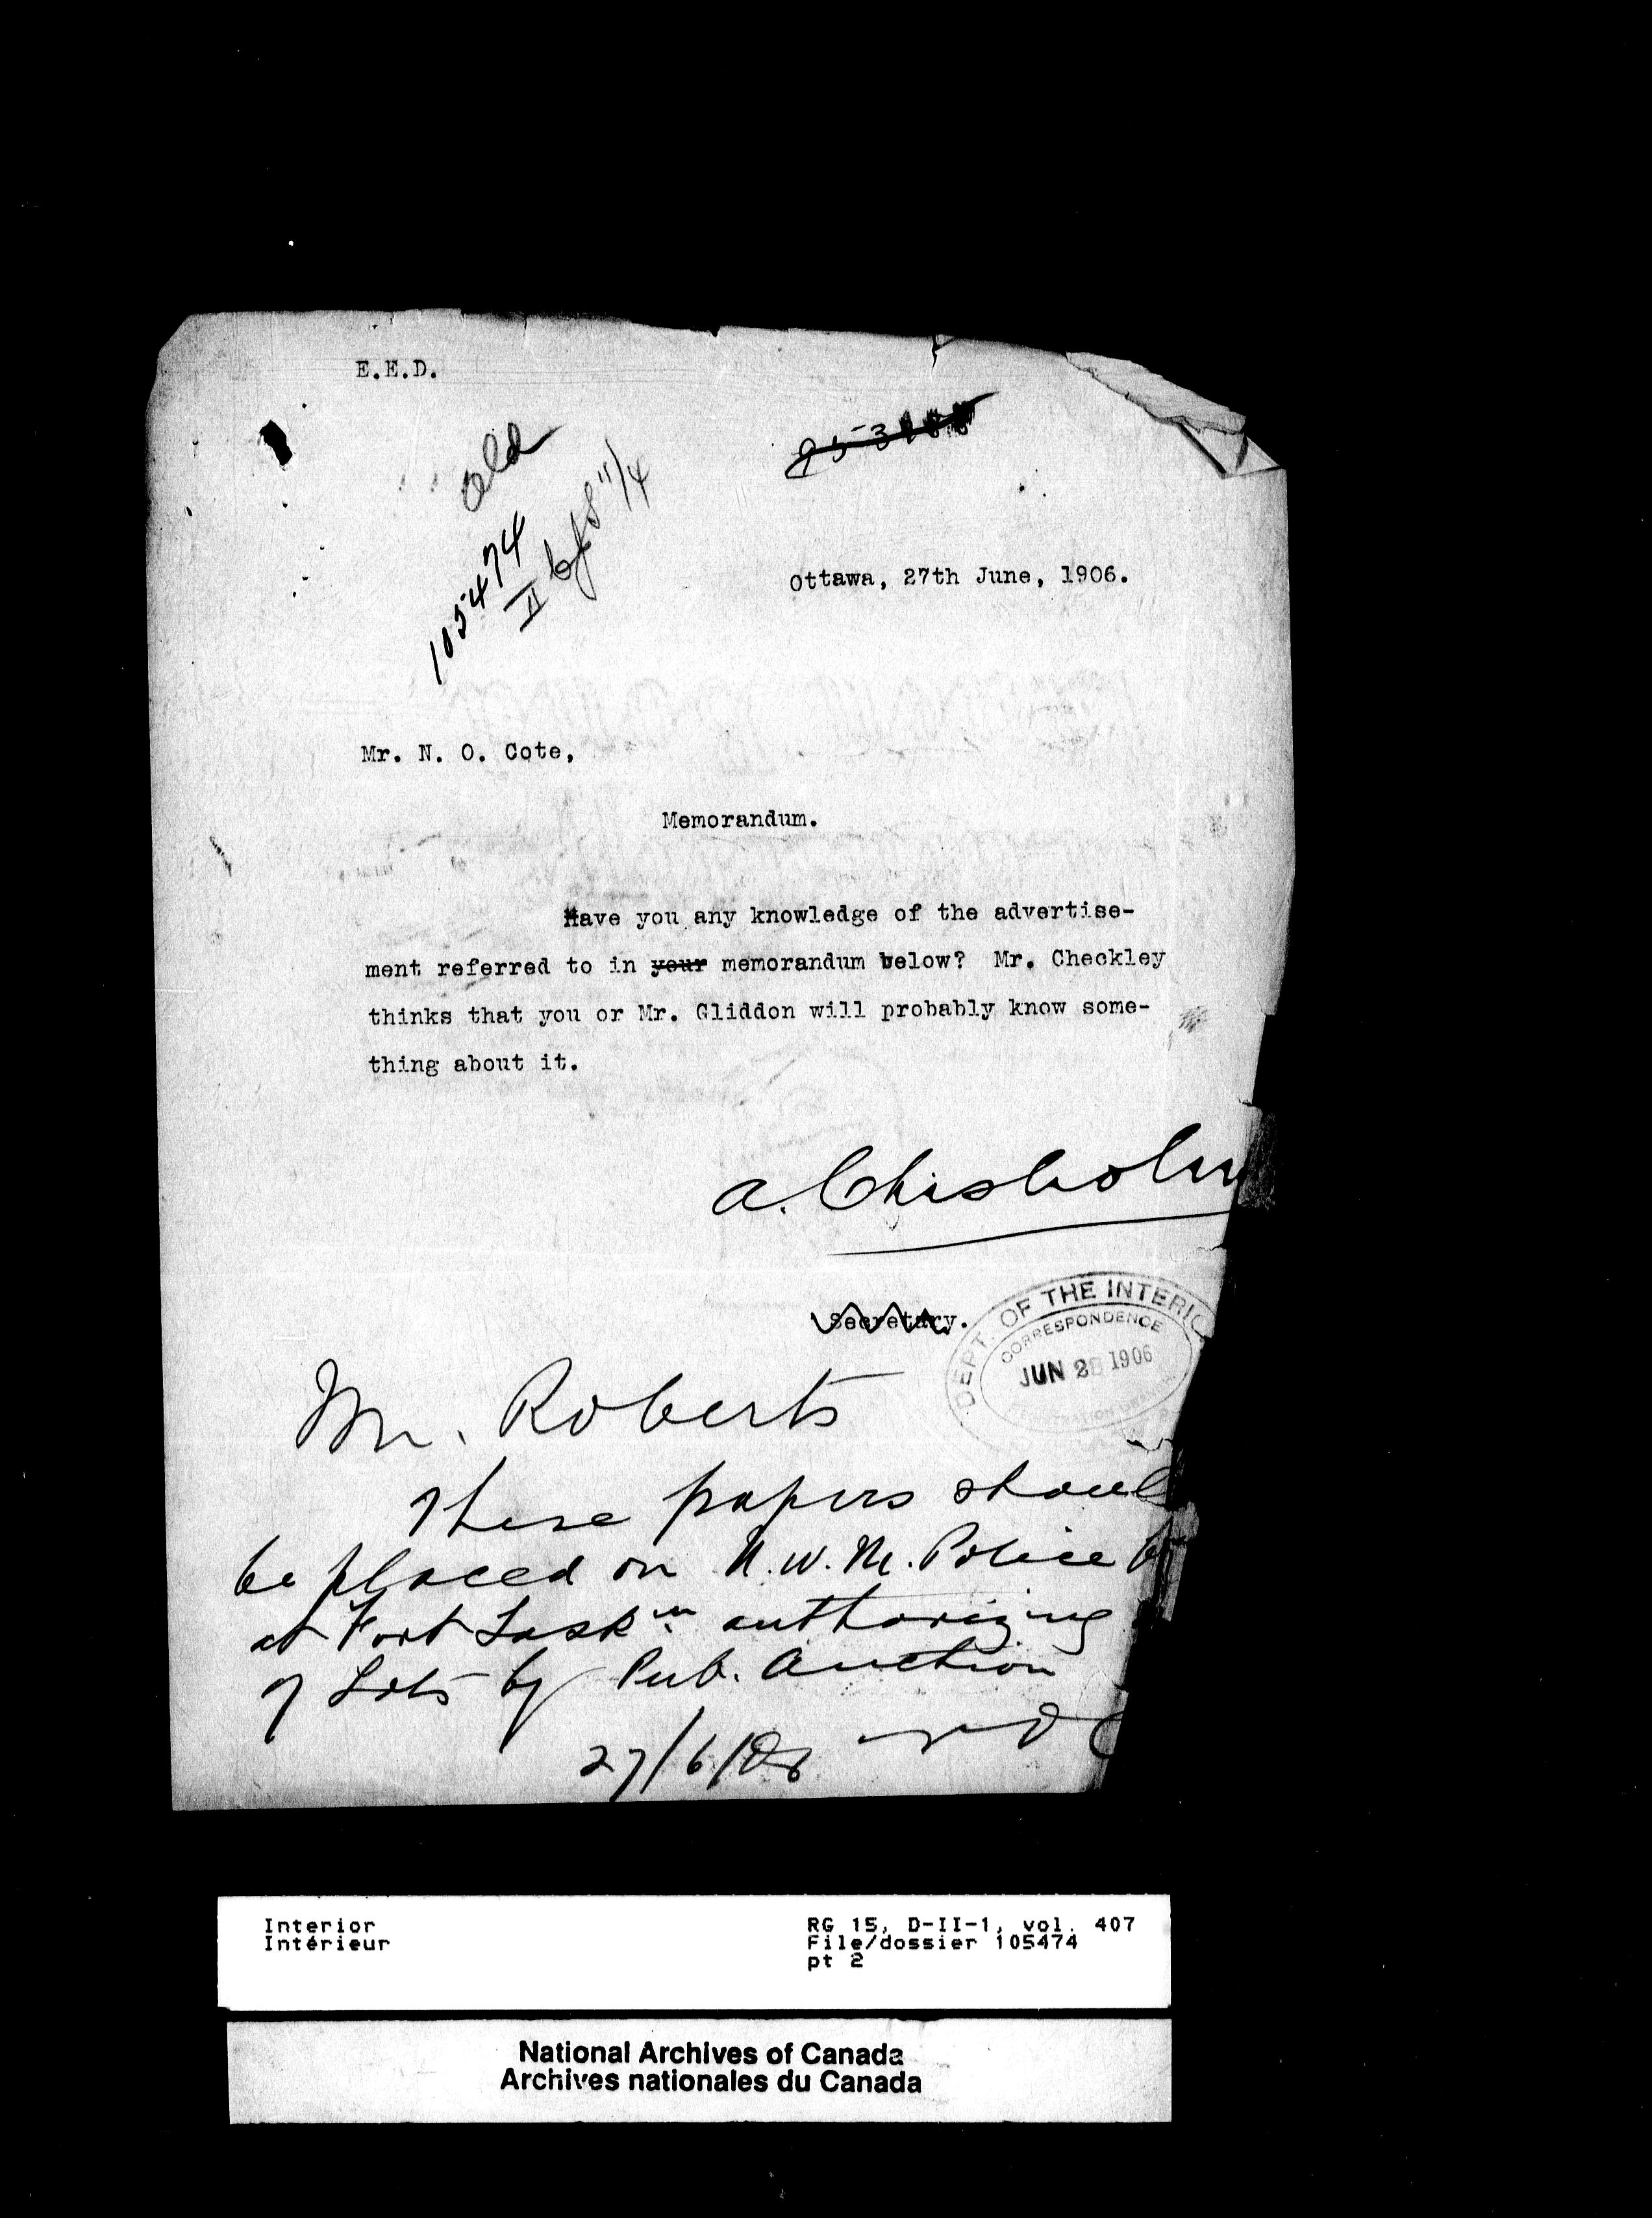 E.E.D.
Old
105474
II bf 8"/4
Ottawa, 27th June, 1906.
Mr. N. O. Cote,
Memorandum.
Have you any knowledge of the advertise-
ment referred to in your memorandum below? Mr. Checkley
thinks that you or Mr. Gliddon will probably know some-
thing about it.
A. Chisholm
Secretary.
DEPT. OF THE INTERIO
CORRESPONDENCE
JUN 28 1906
Mr. Roberts
These papers shoul
be placed on N.W.M. Police
at Fort Sask'n authorizing
of Lots by Pub. Auction
27/6/06 N O C
Interior
Intérieur
RG 15, D-II-1, vol. 407
File/dossier 105474
pt 2
National Archives of Canada
Archives nationales du Canada